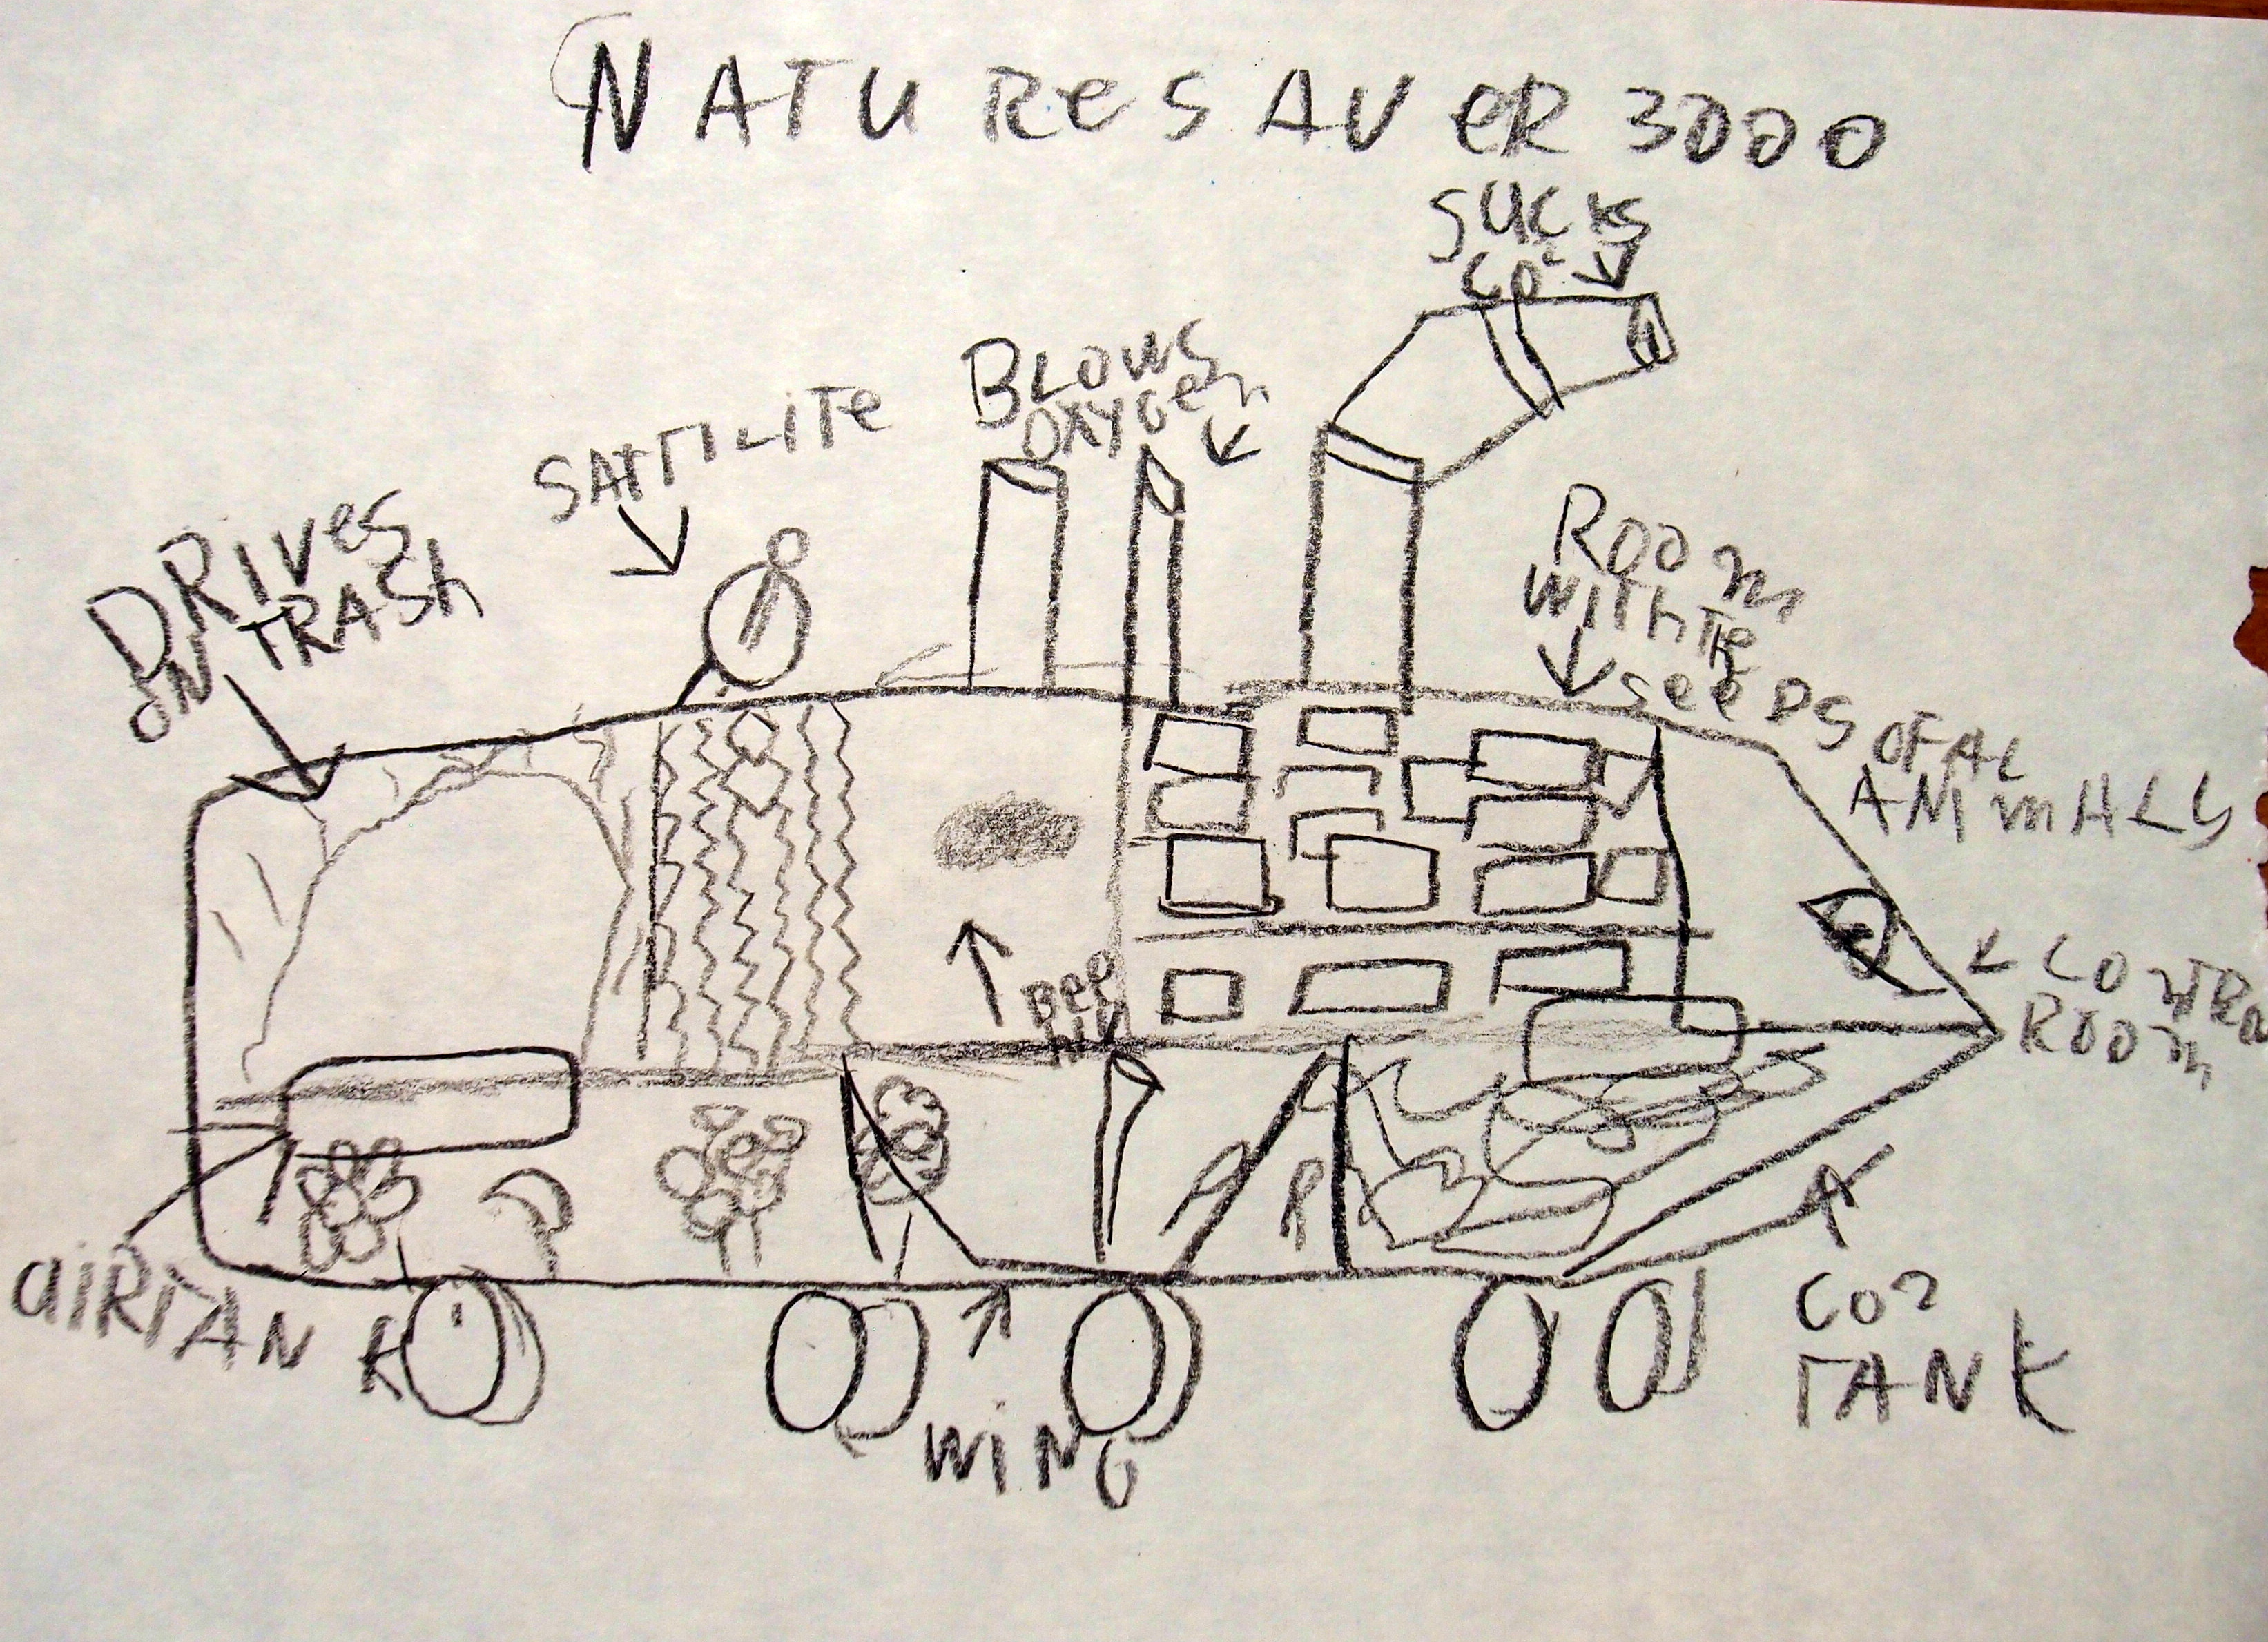 NATURESAVER 3000
SUCKS
CO²
BLOWS
OXYGen
SATTLITe
DRIVeS
ON TRASh
ROOm
WITh Te
SeeDS OF AL
ANImALS
Bee
CONTRO
ROOm
AIRTANK
WiNG
CO2
TANK